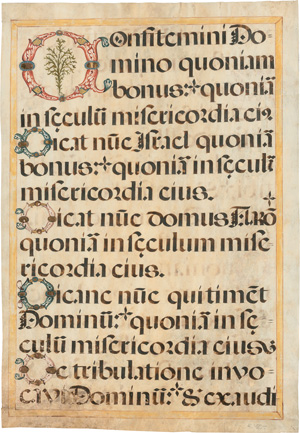 Confitemini Do
mino quoniam
bonus:+quoniā
in sęculū misericordia eiꝰ
Dicat nūc Israel quoniā
bonus:+quoniā in sęculū
misericordia eius.
Dicat nūc domus Aarō
quoniā in seculum mise
ricordia eius.
Dicant nūc qui timēt
Dominū:+quoniā in sę
culū misericordia eius
De tribulatione invo
cavi Dominū:+& exaudi